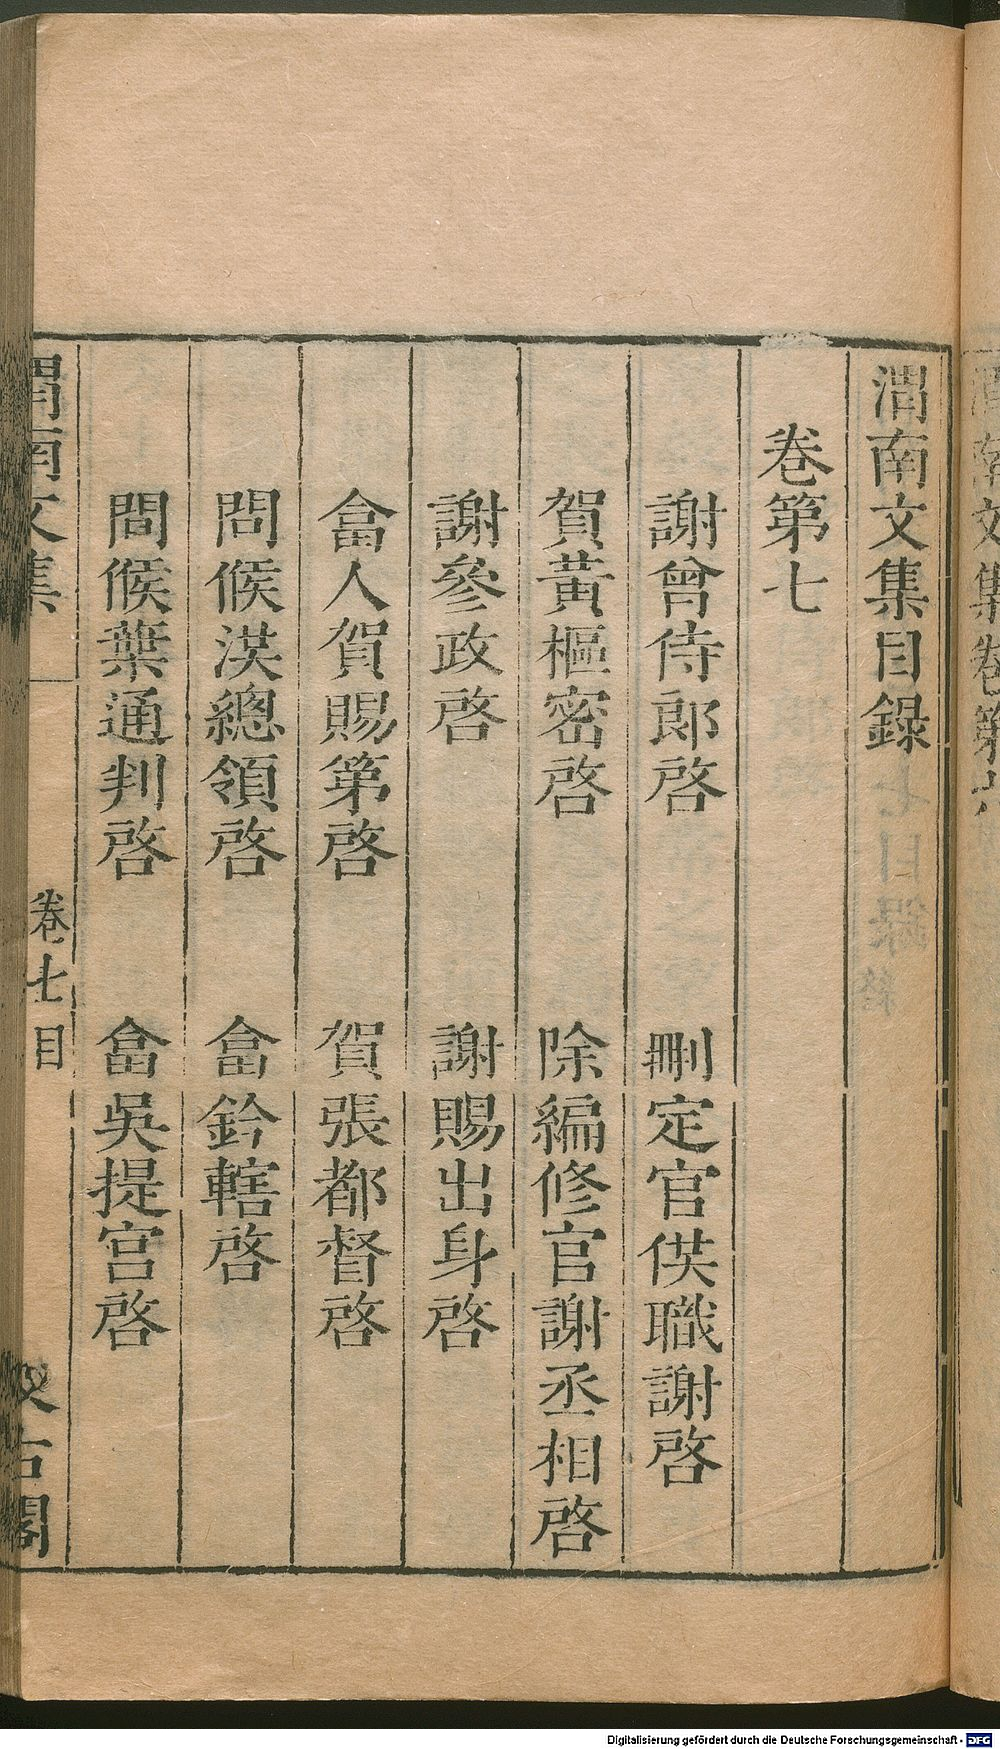 渭南文集目錄
卷第七
謝曾侍郎啓　刪定官供職謝啓
賀黃樞密啓　除編修官謝丞相啓
謝參政啓　謝賜出身啓
畣人賀賜第啓　賀張都督啓
問候洪總領啓　畣鈐轄啓
問候葉通判啓　畣吳提宮啓
渭南文集　卷七目　汲古閣
Digitalisierung gefördert durch die Deutsche Forschungsgemeinschaft - DFG